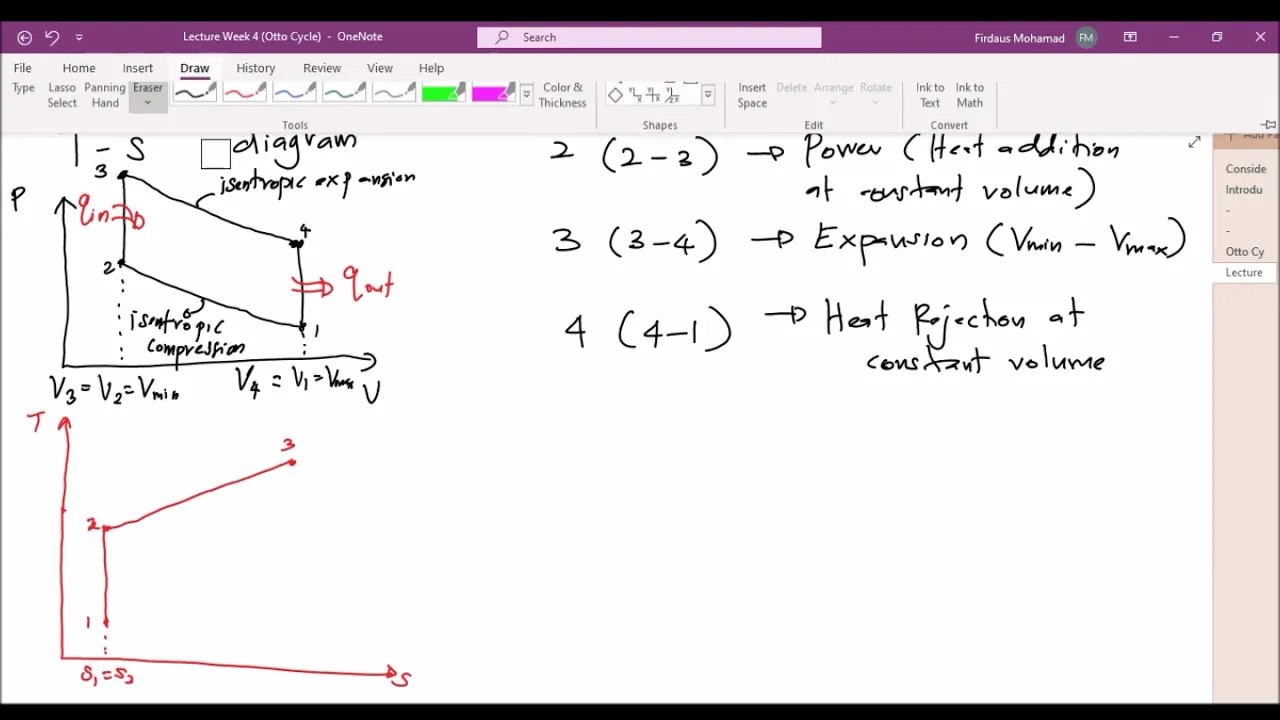 Lecture Week 4 (Otto Cycle) - OneNote
Search
Firdaus Mohamad
FM
File
Home
Insert
Draw
History
Review
View
Help
Type
Lasso
Select
Panning
Hand
Eraser
Color &
Thickness
Insert
Space
Delete
Arrange
Rotate
Ink to
Text
Ink to
Math
Tools
Shapes
Edit
Convert
T - S diagram
P
3
isentropic expansion
qin
4
2
qout
isentropic
compression
1
V3 = V2 = Vmin
V4 = V1 = Vmax
V
2 (2 - 3) → Power (Heat addition
at constant volume)
3 (3 - 4) → Expansion (Vmin - Vmax)
4 (4 - 1) → Heat Rejection at
constant volume
T
3
2
1
S1 = S2
S
Conside
Introdu
-
-
Otto Cy
Lecture